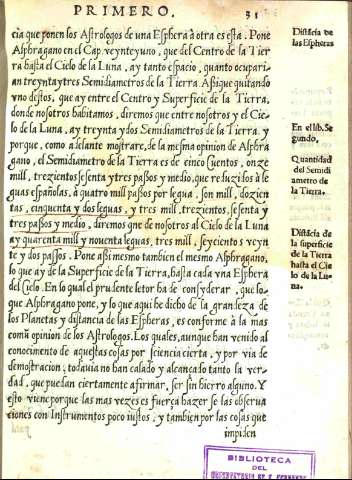 PRIMERO. 31
cia que ponen los Astrologos de una Esphera à otra es esta. Pone
Alphragano en el Cap. veynteyuno, que del Centro de la Tier
ra hasta el Cielo de la Luna, ay tanto espacio, quanto ocupari
an treynta y tres Semidiametros de la Tierra Assi que quitando
vno destos, que ay entre el Centro y Superficie de la Tierra,
donde nosotros habitamos, diremos que entre nosotros y el Cie-
lo de la Luna, ay treynta y dos Semidiametros de la Tierra. y
porque, como adelante mostrare, de la mesma opinion de Alphra
gano, el Semidiametro de la Tierra es de cinco cuentos, onze
mill, trezientos sesenta y tres passos y medio, que reduzidos à le
guas españolas, à quatro mill passos por legua, son mill, dozien
tas, cinquenta y dos leguas, y tres mill, trezientos, sesenta y
tres passos y medio, diremos que de nosotros al Cielo de la Luna
ay quarenta mill y nouenta leguas, tres mill, seycientos veyn
te y dos passos. Pone assi mesmo tambien el mesmo Alphragano,
lo que ay de la Superficie de la Tierra, hasta cada vna Esphera
del Cielo. En lo qual el prudente letor ha de consyderar, que lo
que Alphragano pone, y lo que aqui he dicho de la grandeza de
los Planetas y distancia de las Espheras, es conforme à la mas
comũ opinion de los Astrologos. Los quales, aunque han venido al
conocimento de aquestas cosas por sciencia cierta, y por via de
demostracion, todavia no han calado y alcançado tanto la ver-
dad, que puedan ciertamente afirmar, ser sin hierro alguno. Y
esto viene porque las mas vezes es fuerça hazer se las observa
ciones con Instrumentos poco iustos, y tambien por las cosas que
impiden
Distãcia de
las Espheras
En el lib. Se
gundo.
Quantidad
del Semidi
ametro de
la Tierra.
Distãcia de
la superficie
de la Tierra
hasta el Cie
lo de la Lu-
na.
BIBLIOTECA
DEL
OBSERVATORIO DE S. FERNANDO